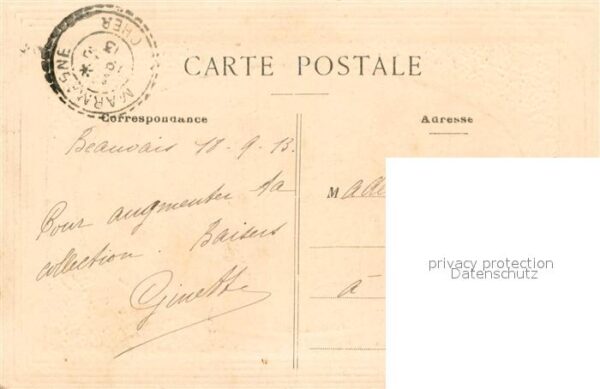 MARMAGNE
CHER
13
CARTE POSTALE
Correspondance
Adresse
Beauvais 18-9-13.
Pour augmenter ta
collection. Baisers
Ginette
Made
à
privacy protection
Datenschutz